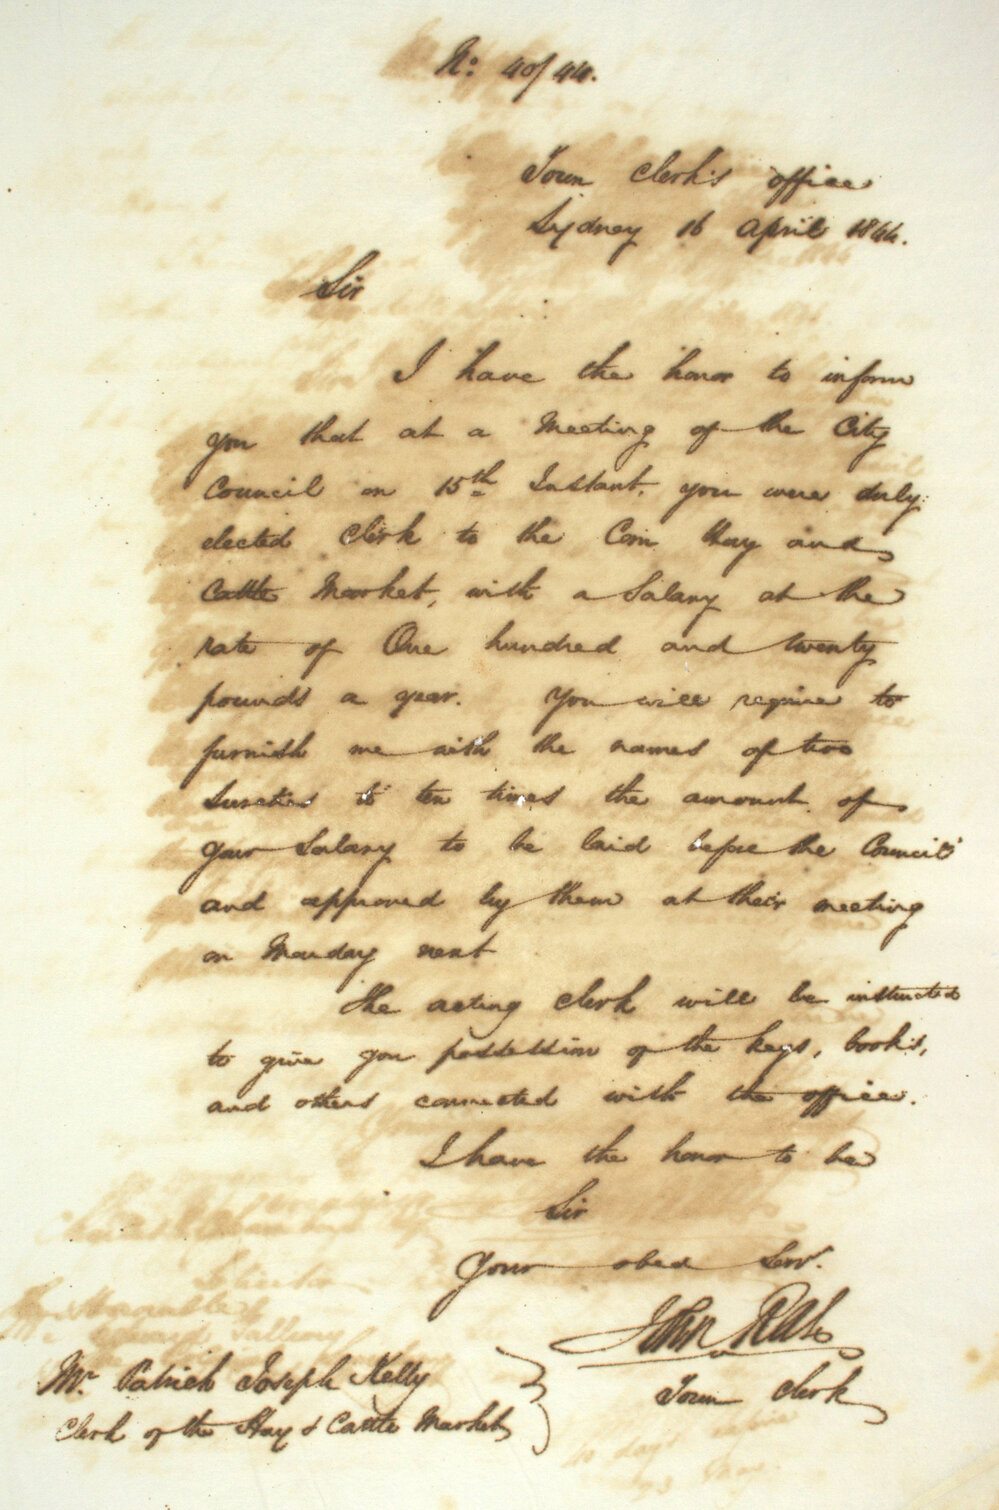 No. 40/44.
Town Clerk's office
Sydney 16 April 1844.
Sir
I have the honor to inform
you that at a Meeting of the City
Council on 15th Instant, you were duly
elected Clerk to the Corn Hay and
Cattle Market, with a Salary at the
rate of One hundred and twenty
pounds a year. You will require to
furnish me with the names of two
Sureties to ten times the amount of
your Salary to be laid before the Council
and approved by them at their meeting
on Monday next
The acting Clerk will be instructed
to give you possession of the keys, books,
and others connected with the office.
I have the honor to be
Sir
Your obed Serv.
John
Town Clerk
Mr. Patrick Joseph Kelly
Clerk of the Hay & Cattle Market